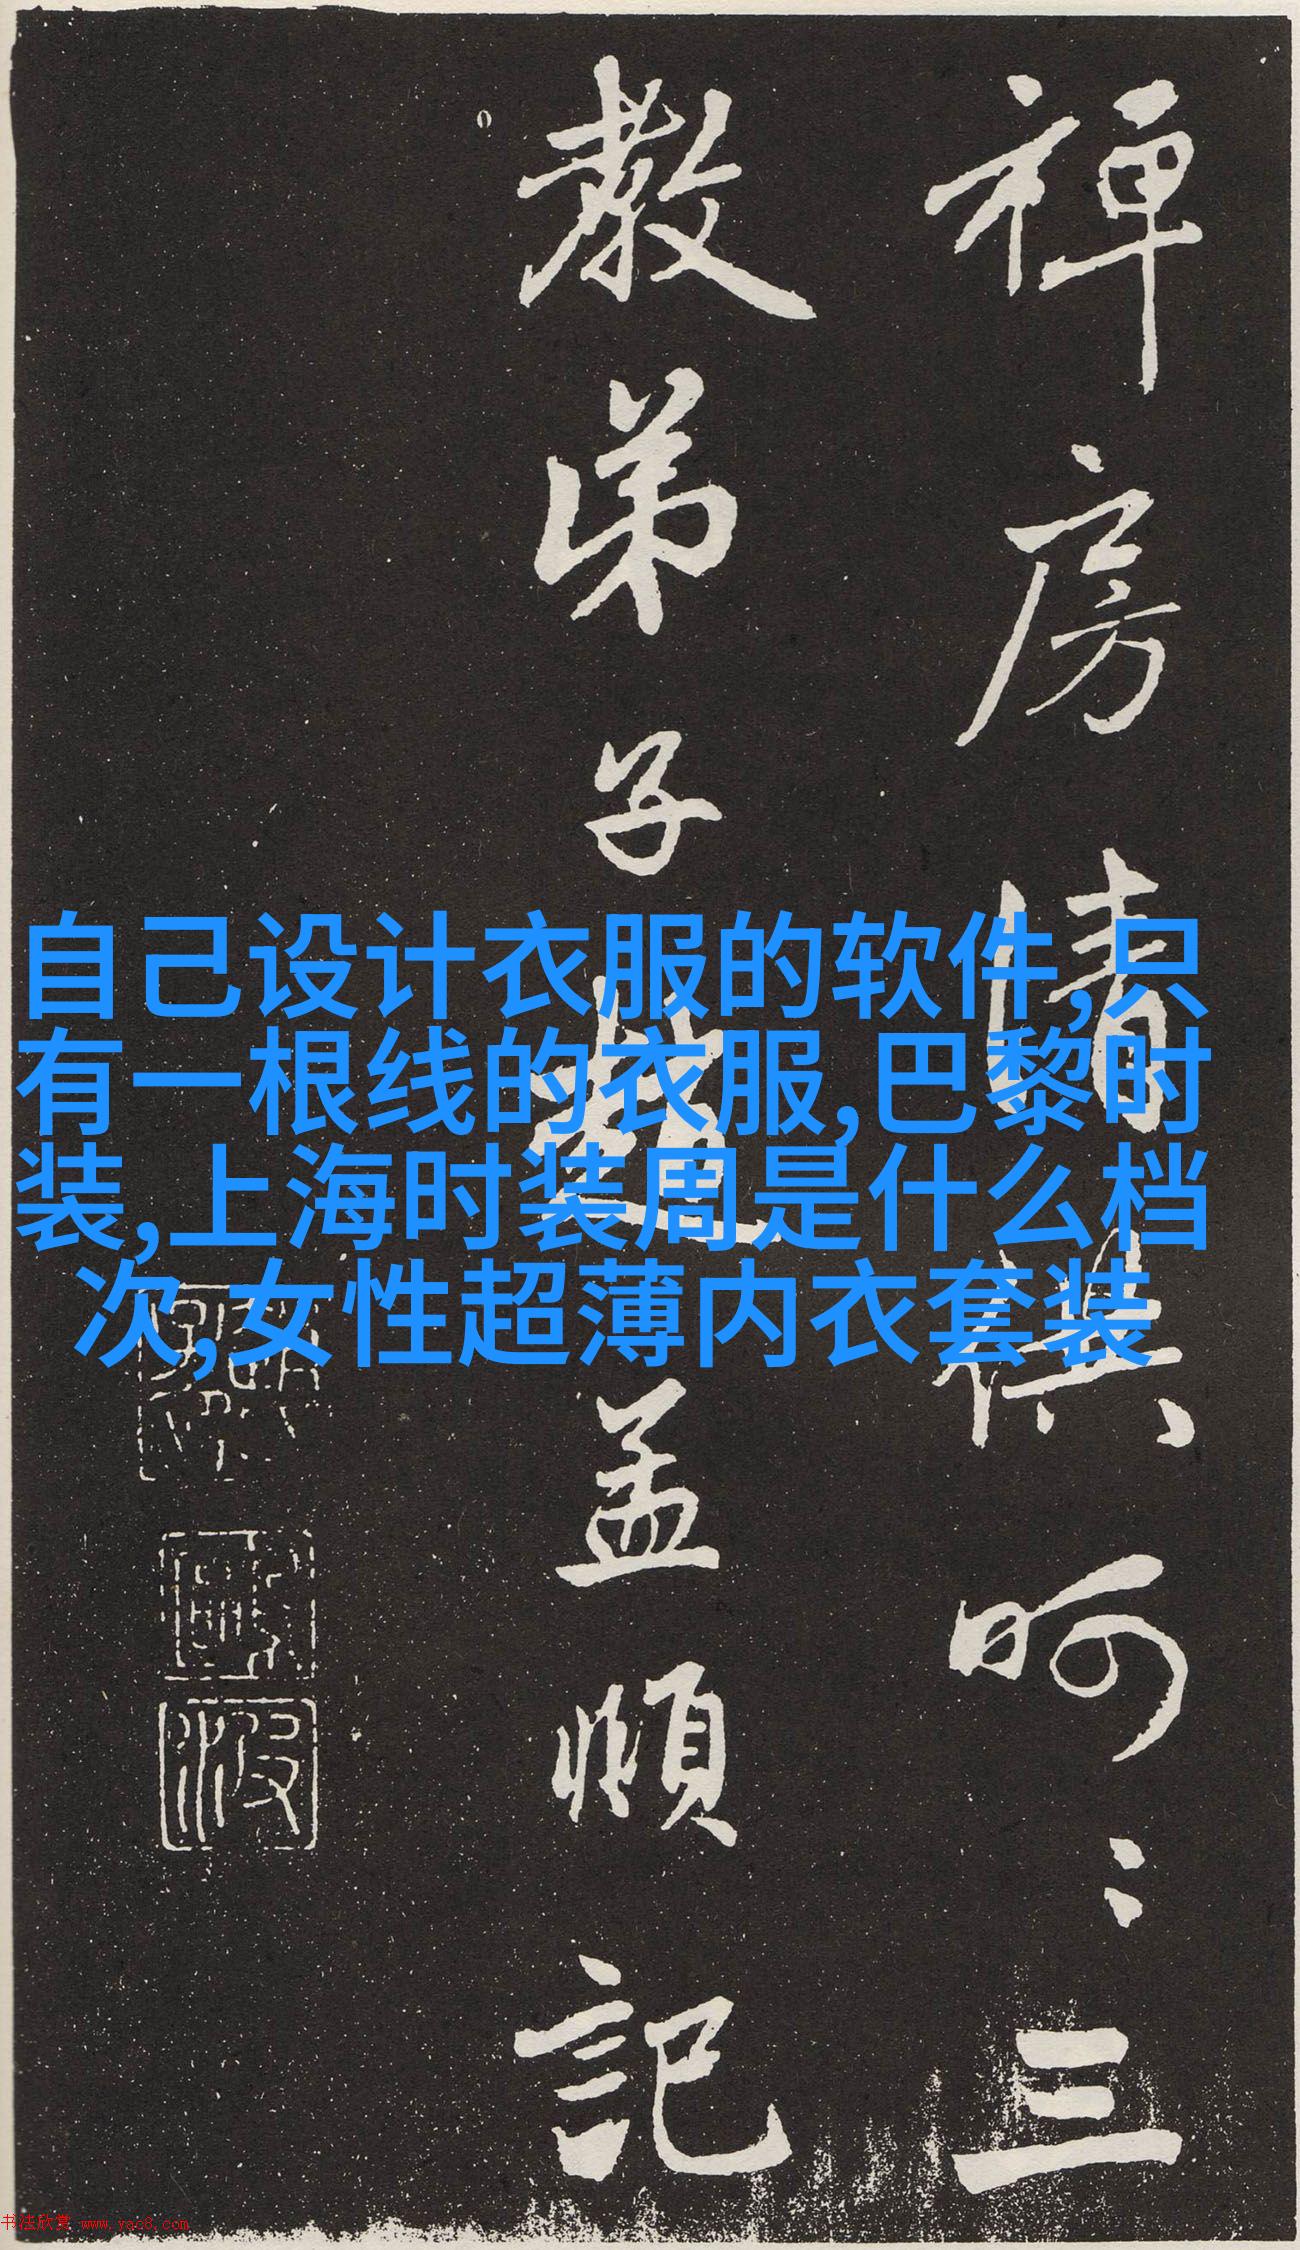 禅房清供呵〻三
教弟子趙孟頫記
自己设计衣服的软件,只
有一根线的衣服,巴黎时
装,上海时装周是什么档
次,女性超薄内衣套装
书法欣赏 www.yac8.com